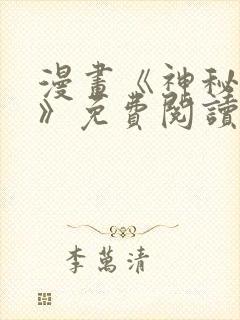 漫畫《神秘
》免費閱讀
李萬清